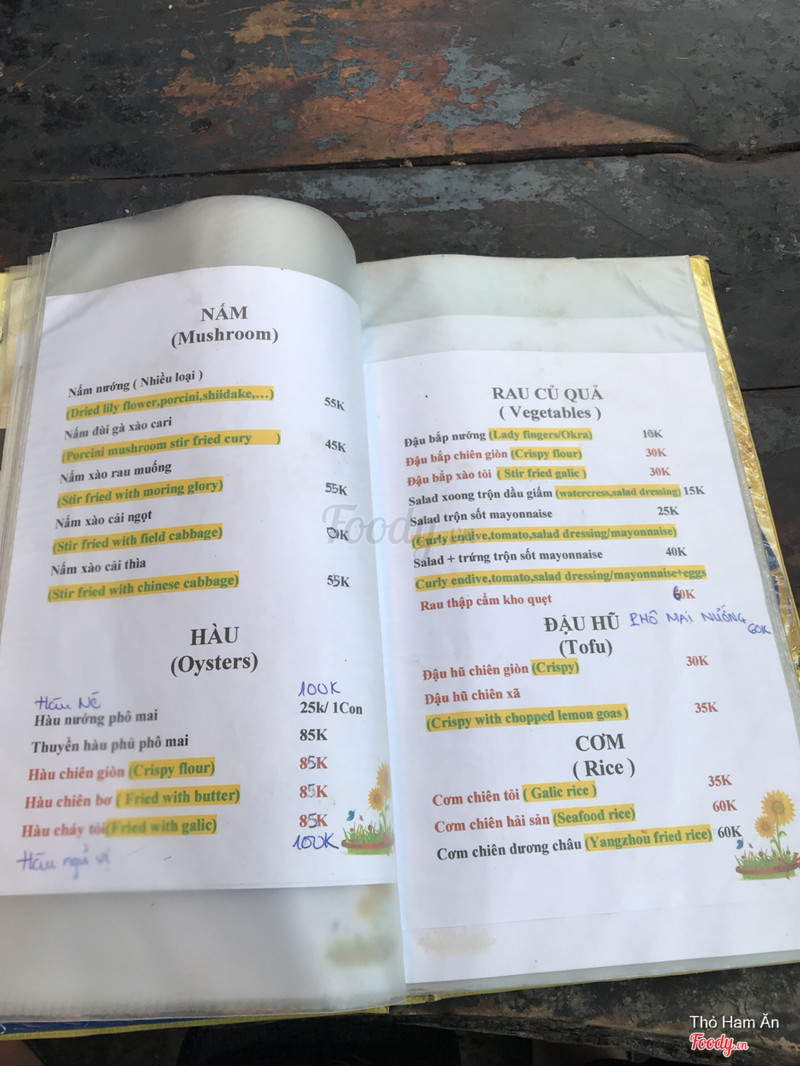 NẤM
(Mushroom)
Nấm nướng ( Nhiều loại )
(Dried lily flower,porcini,shiidake,...) 55K
Nấm đùi gà xào cari
(Porcini mushroom stir fried cury ) 45K
Nấm xào rau muống
(Stir fried with moring glory) 55K
Nấm xào cải ngọt
(Stir fried with field cabbage)
Nấm xào cải thìa
(Stir fried with chinese cabbage) 55K
HÀU
(Oysters)
Hàu Né 100K
Hàu nướng phô mai 25k/ 1Con
Thuyền hàu phủ phô mai 85K
Hàu chiên giòn (Crispy flour) 85K
Hàu chiên bơ ( Fried with butter) 85K
Hàu cháy tỏi(Fried with galic) 85K
Hàu ngũ vị 100K
RAU CỦ QUẢ
( Vegetables )
Đậu bắp nướng (Lady fingers/Okra) 10K
Đậu bắp chiên giòn (Crispy flour) 30K
Đậu bắp xào tỏi ( Stir fried galic ) 30K
Salad xoong trộn dầu giấm (watercress,salad dressing) 15K
Salad trộn sốt mayonnaise 25K
(Curly endive,tomato,salad dressing/mayonnaise)
Salad + trứng trộn sốt mayonnaise 40K
Curly endive,tomato,salad dressing/mayonnaise+eggs
Rau thập cẩm kho quẹt 60K
ĐẬU HŨ PHÔ MAI NƯỚNG 60K
(Tofu)
Đậu hũ chiên giòn (Crispy) 30K
Đậu hũ chiên xã
(Crispy with chopped lemon goas ) 35K
CƠM
( Rice )
Cơm chiên tỏi ( Galic rice ) 35K
Cơm chiên hải sản (Seafood rice) 60K
Cơm chiên dương châu (Yangzhou fried rice) 60K
Foody.vn
Thỏ Ham Ăn
Foody.vn